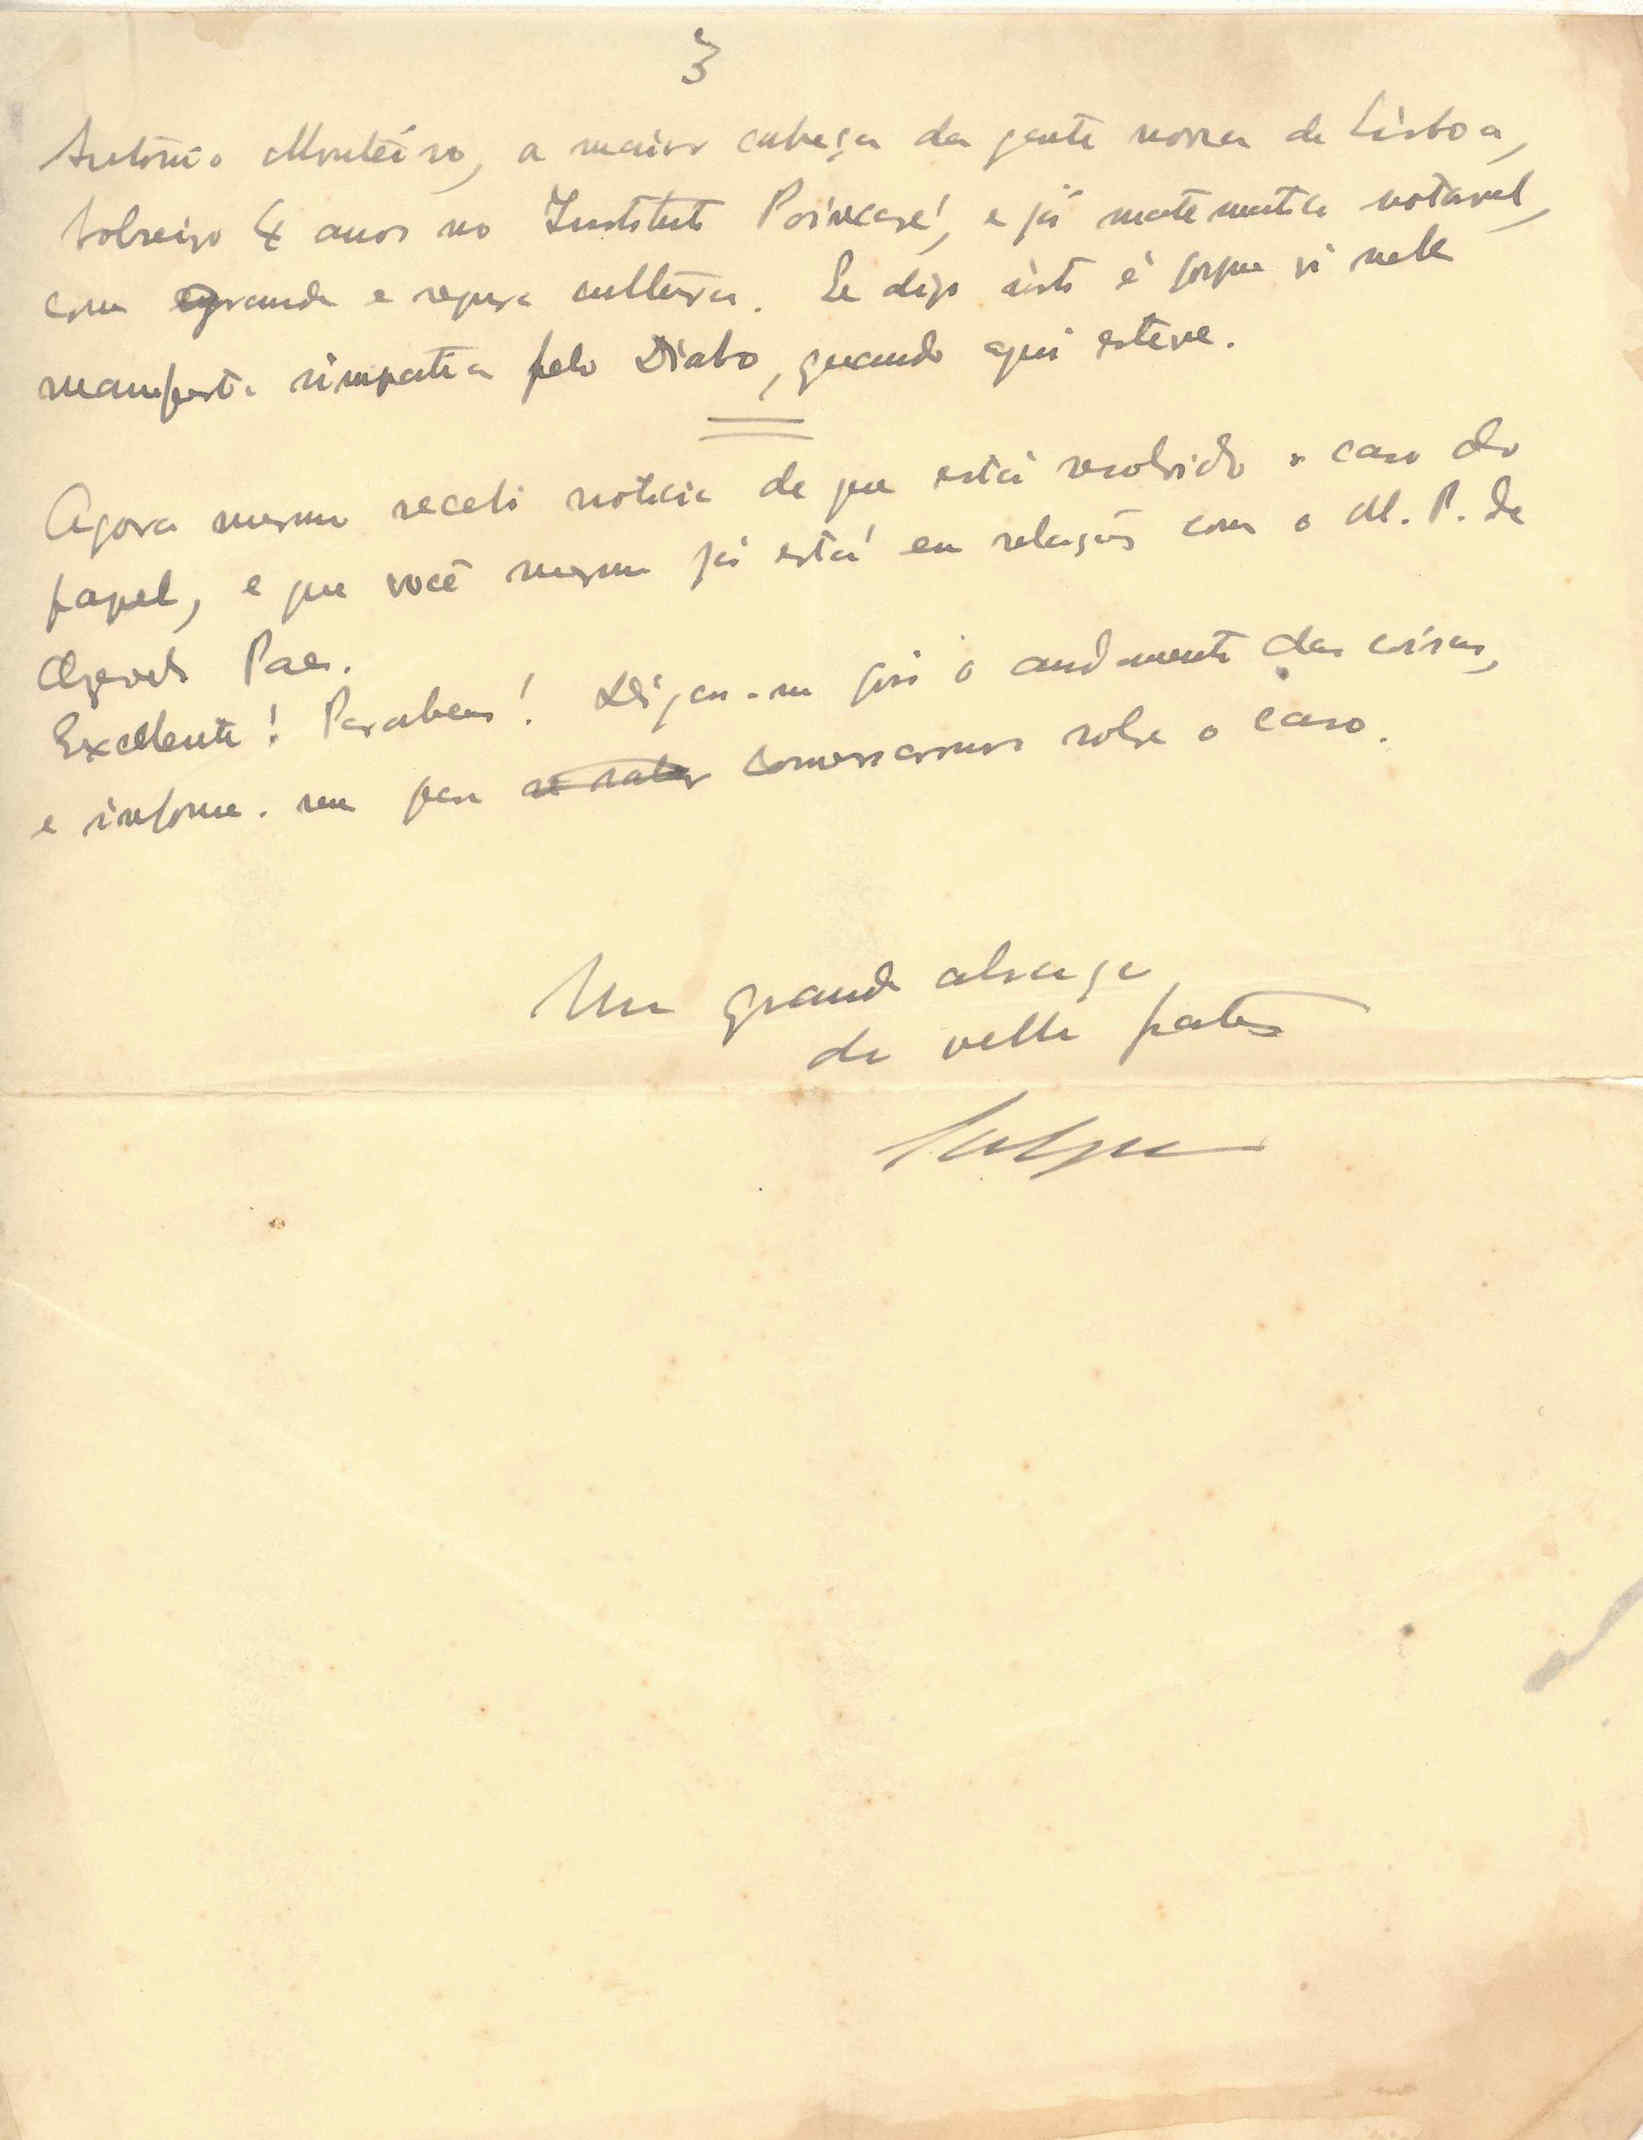 3
António Monteiro, a maior cabeça da gente nossa de Lisboa,
bolseiro 4 anos no Institut Poincaré, e já matematico notavel,
com grande e segura cultura. Se digo isto é porque vi nele
manifesta simpatia pelo Diabo, quando aqui esteve.
Agora mesmo recebi noticia de que está resolvido o caso do
papel, e que você mesmo já está em relações com o M. P. de
Azevedo Paes.
Excellente! Parabens! Diga-me pois o andamento das coisas,
e informe-me para se saber conversarmos sobre o caso.
Um grande abraço
do velho